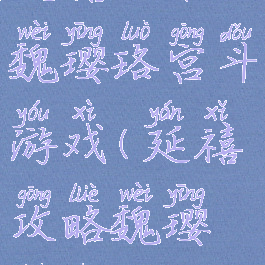 wèi yīng luò gōng dǒu
魏璎珞宫斗
yóu xì yán xǐ
游戏(延禧
gōng lüè wèi yīng
攻略魏璎